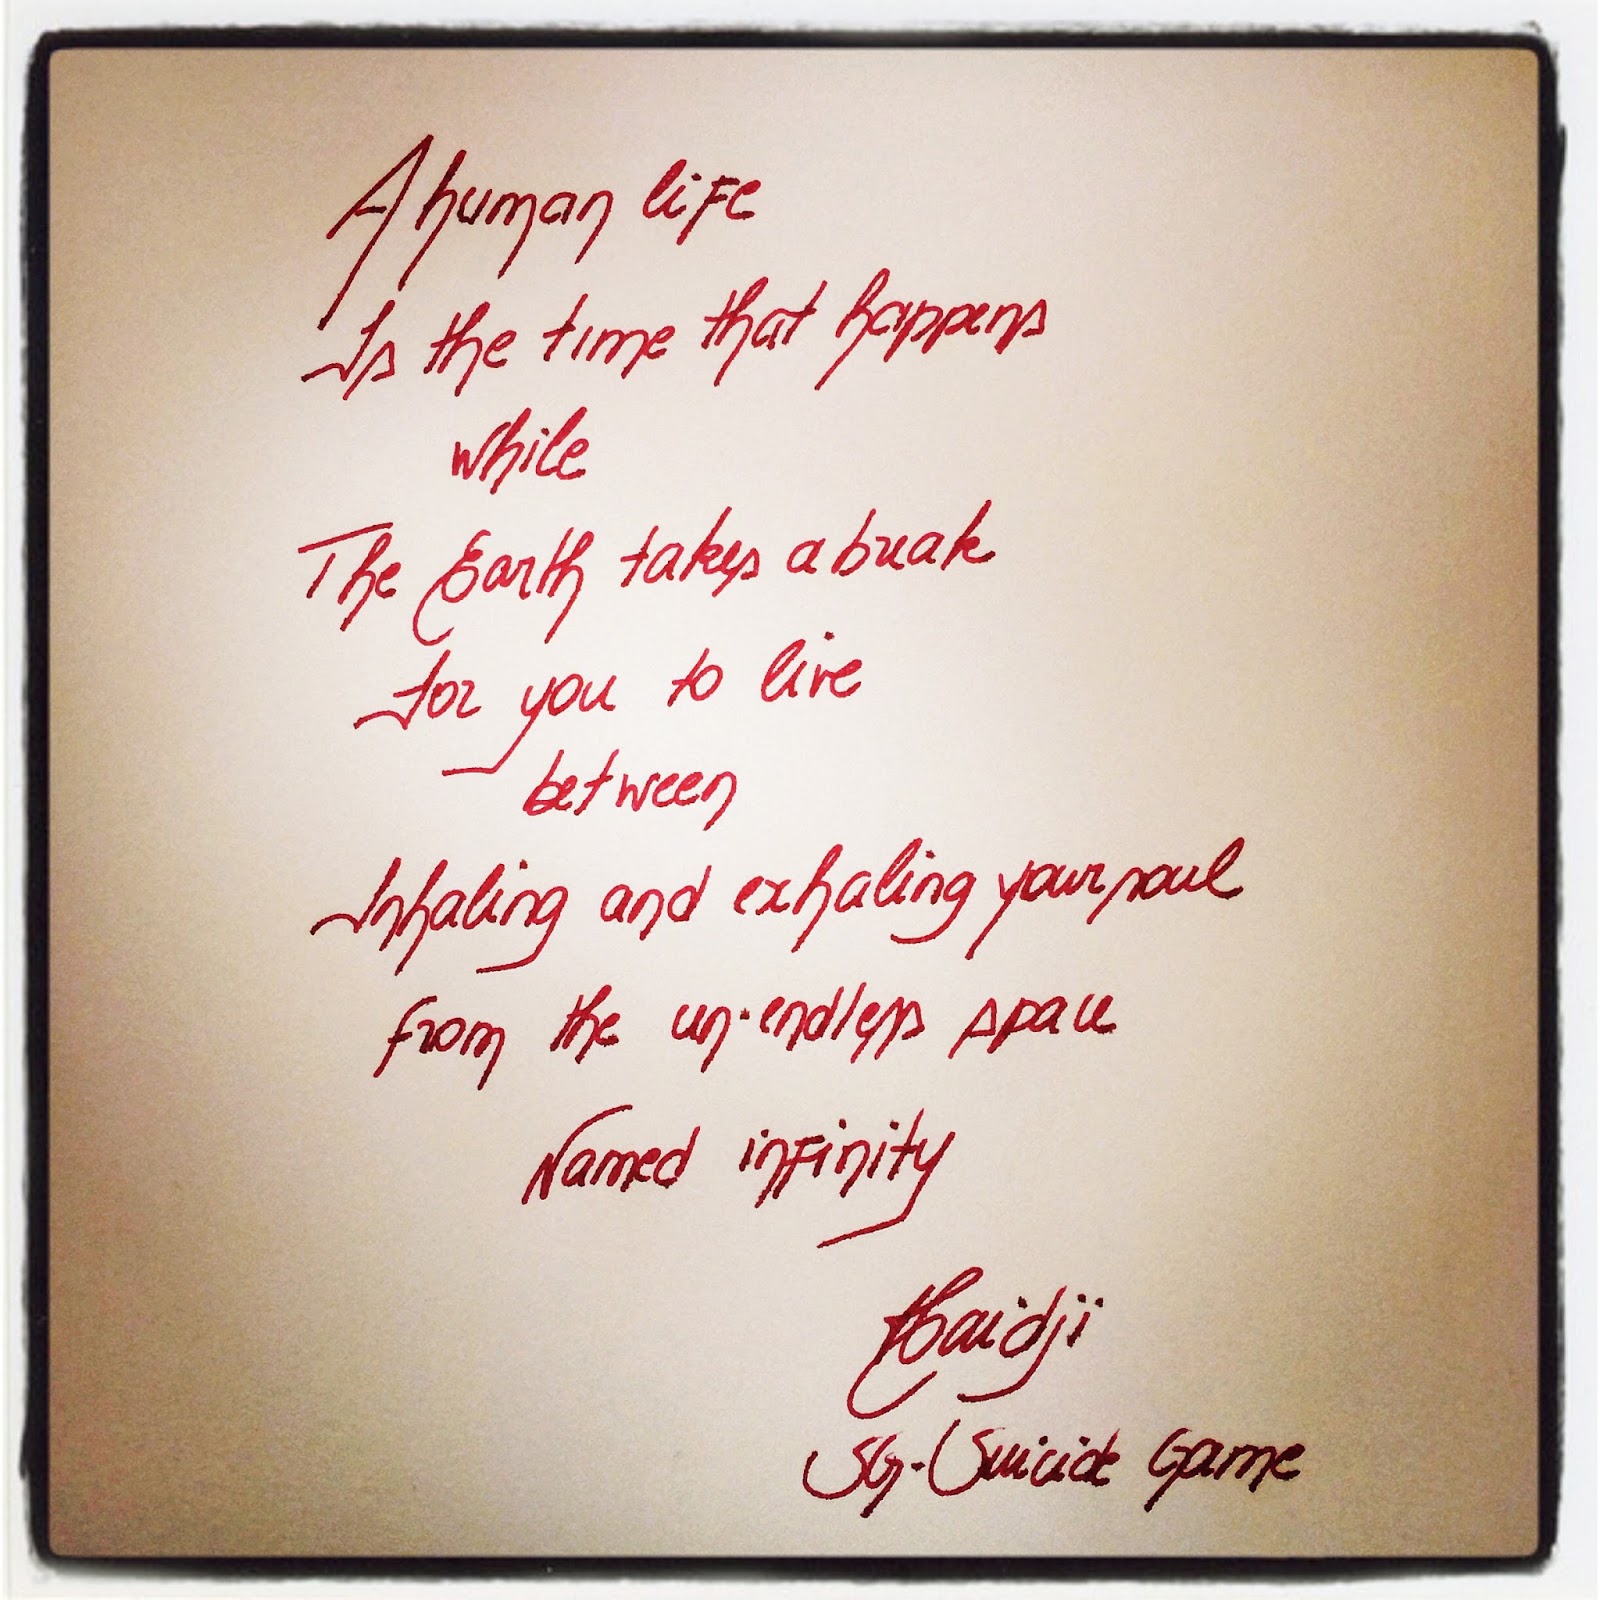 A human life
Is the time that happens
while
The Earth takes a break
for you to live
between
Inhaling and exhaling your soul
from the un-endless space
Named infinity
Haidji
SG-Suicide Game